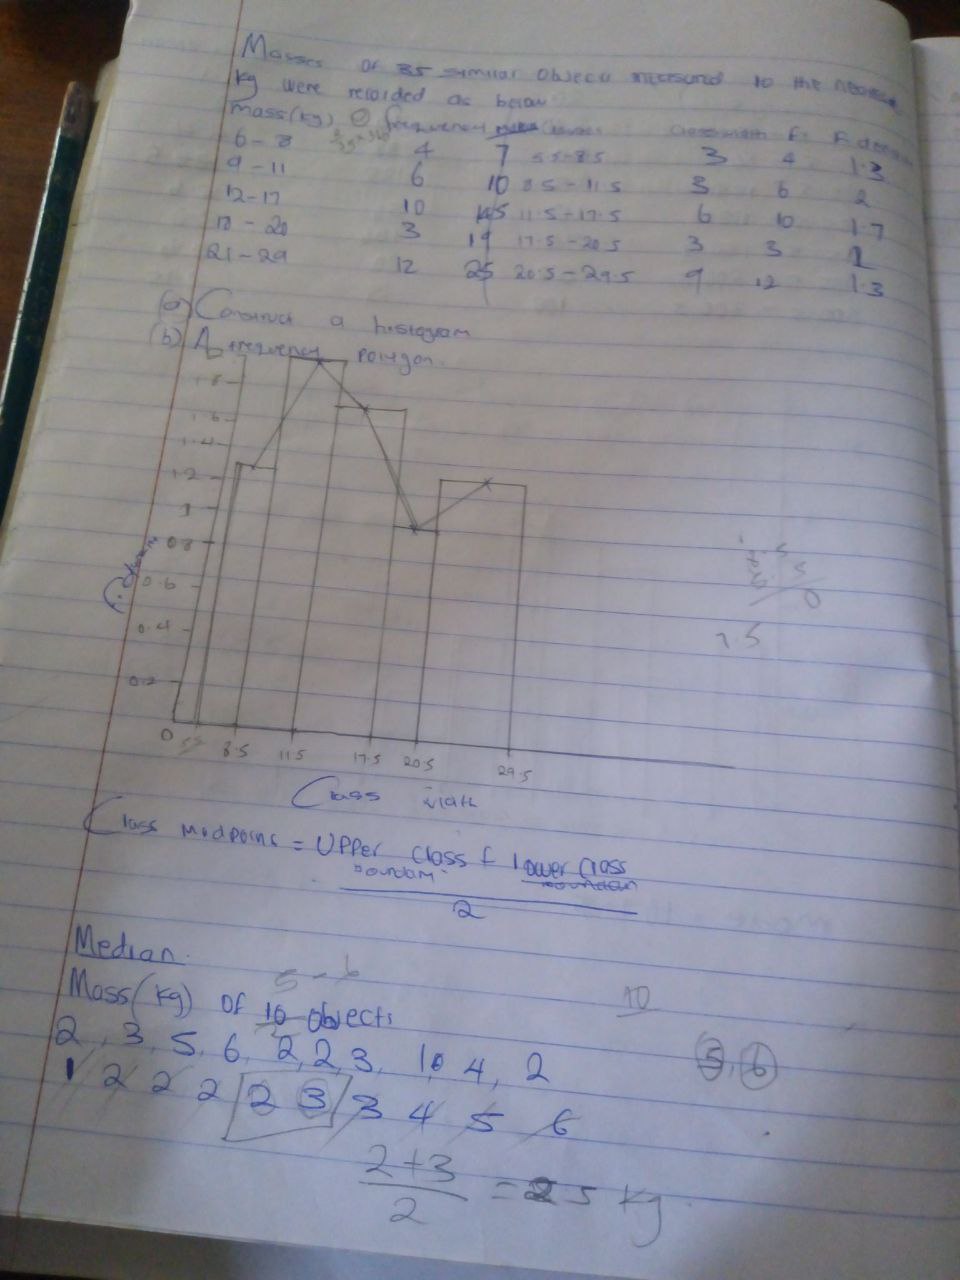 Masses of 35 similar objects measured to the nearest
kg were recorded as below
mass(kg) frequency classwidth F. F. den
6-8 4 7 5.5-8.5 3 4 1.3
9-11 6 10 8.5-11.5 3 6 2
12-17 10 11.5-17.5 6 10 1.7
18-20 3 19 17.5-20.5 3 3 1
21-29 12 25 20.5-29.5 9 12 1.3
(a) Construct a histogram
(b) A frequency polygon.
1.8
1.6
1.4
1.2
1
0.8
0.6
0.4
0.2
0 5.5 8.5 11.5 17.5 20.5 29.5
Class width
7.5
Class midpoint = Upper class + lower class
boundary boundary
2
Median.
5-6
Mass(kg) of 10 Objects
10
2, 3, 5, 6, 2, 2, 3, 10, 4, 2
5, 6
1 2 2 2 2 3 3 4 5 6
2+3
2
= 25 kg.